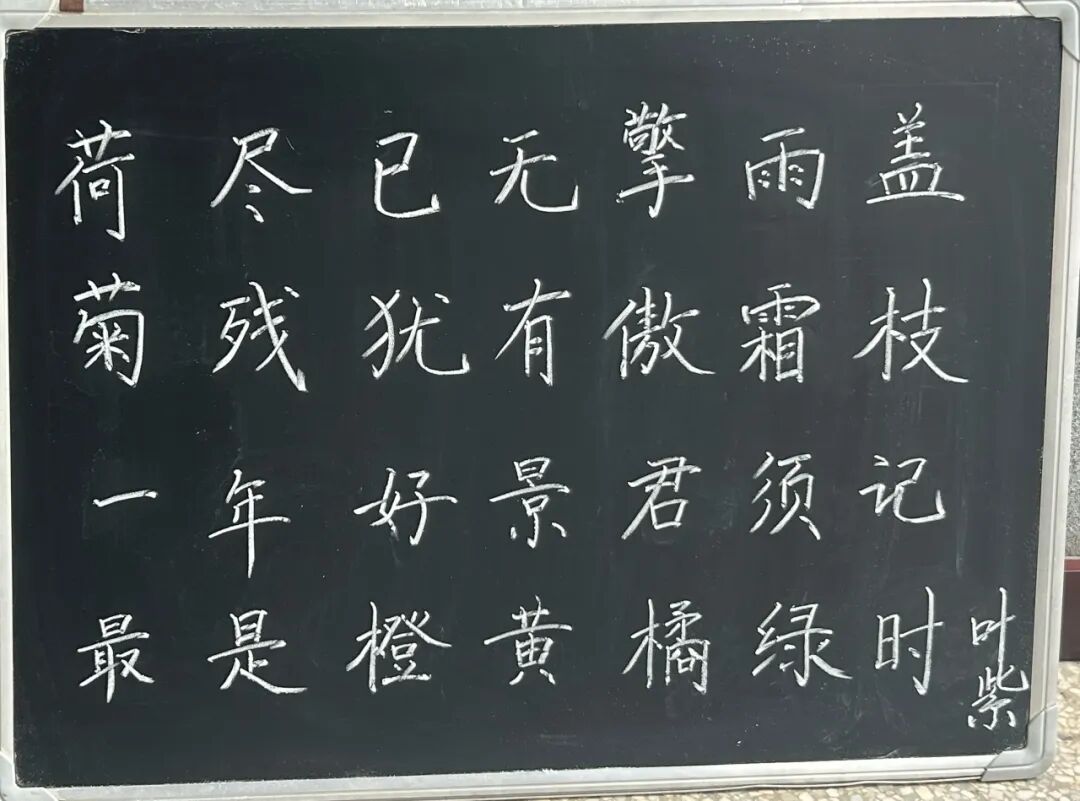 荷尽已无擎雨盖
菊残犹有傲霜枝
一年好景君须记
最是橙黄橘绿时
叶紫